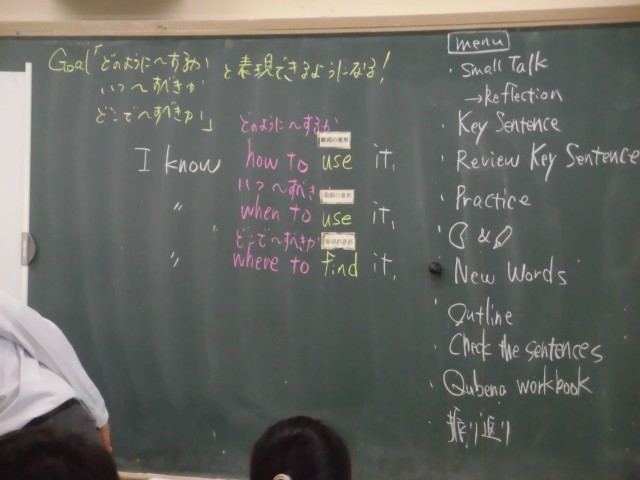 Goal「どのように〜するか
いつ〜すべきか
どこで〜すべきか」
と表現できるようになる!
どのように〜するか
動詞の原形
I know how to use it.
いつ〜すべきか
動詞の原形
〃 when to use it.
どこで〜すべきか
動詞の原形
〃 where to find it.
menu
・Small Talk
→Reflection
・Key Sentence
・Review Key Sentence
・Practice
・ &
・New Words
・Outline
・Check the sentences
・Qubena workbook
・振り返り